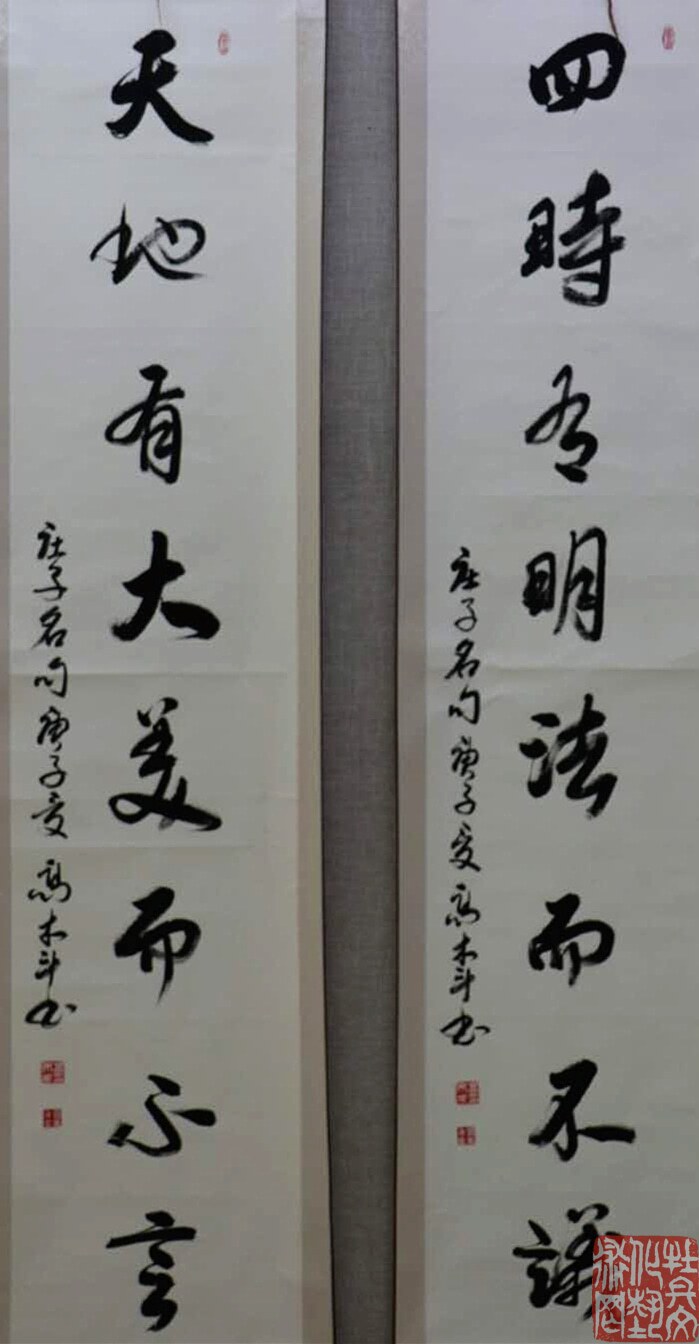 天地有大美而不言
庄子名句庚子夏高木斗书
四時有明法而不議
庄子名句庚子夏高木斗书